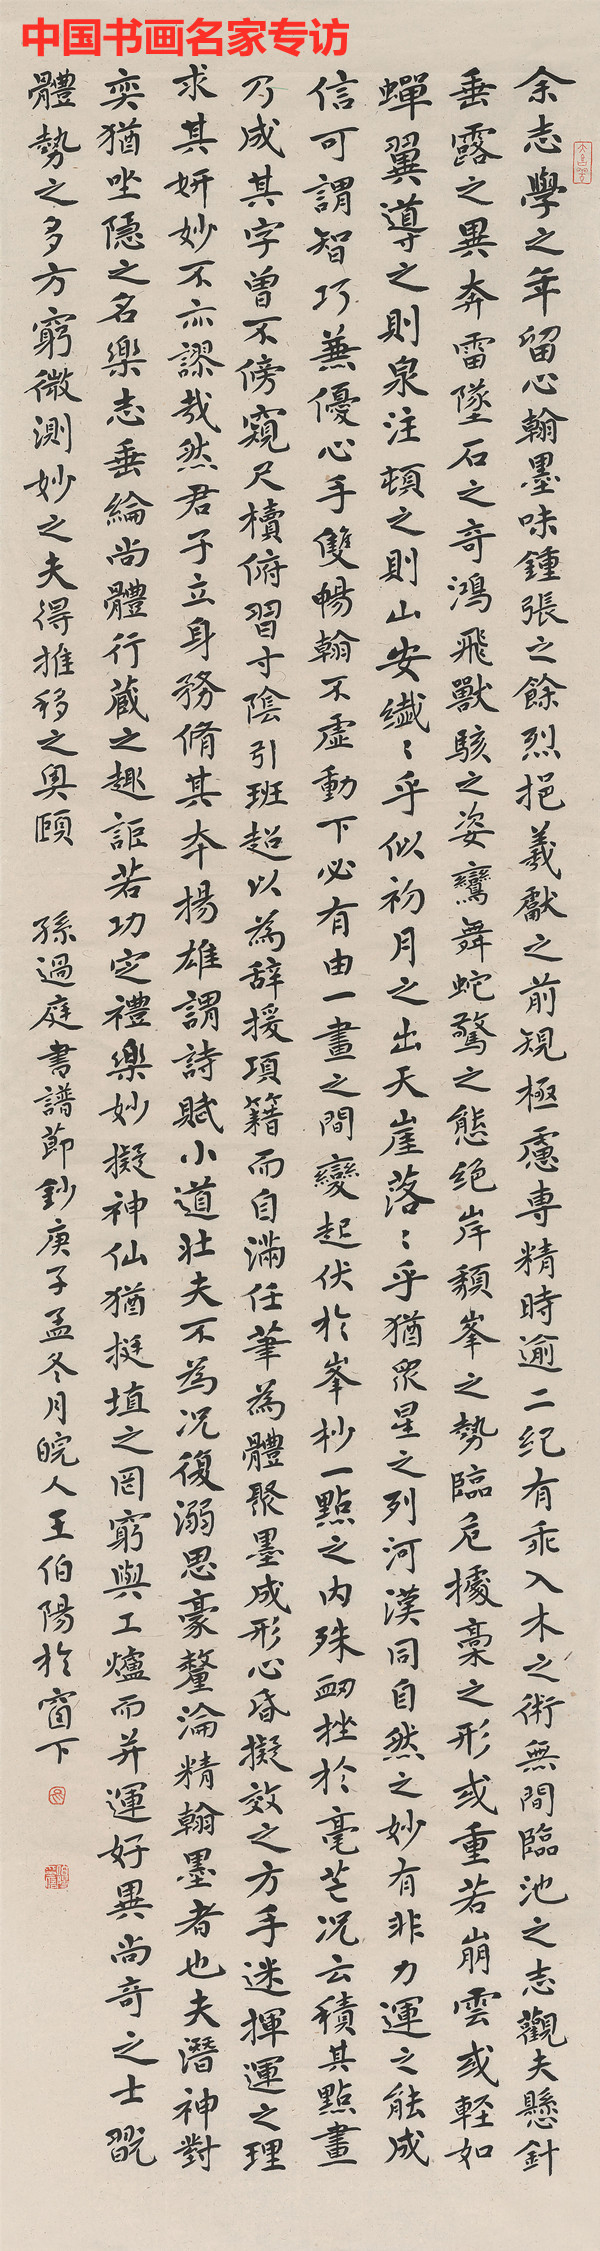 中国书画名家专访
余志學之年留心翰墨味鍾張之餘烈挹羲獻之前規極慮專精時逾二纪有乖入木之術無間臨池之志觀夫懸針
垂露之異奔雷墜石之奇鴻飛獸駭之姿鸞舞蛇驚之態绝岸頹峯之勢臨危據槀之形或重若崩雲或輕如
蟬翼導之則泉注頓之則山安纖〻乎似初月之出天崖落〻乎猶眾星之列河漢同自然之妙有非力運之能成
信可謂智巧兼優心手雙暢翰不虛動下必有由一畫之間變起伏於峯杪一點之内殊衄挫於毫芒况云積其點畫
乃成其字曾不傍窺尺櫝俯習寸陰引班超以為辞援項籍而自滿任筆為體聚墨成形心昏擬效之方手迷揮運之理
求其妍妙不亦謬哉然君子立身務脩其本揚雄謂詩賦小道壯夫不為况復溺思豪釐淪精翰墨者也夫潛神對
奕猶坐隱之名樂志垂綸尚體行蔵之趣詎若功定禮樂妙擬神仙猶挻埴之罔窮與工爐而并運好異尚奇之士翫
體勢之多方窮微測妙之夫得推移之奥頤 孫過庭書譜節鈔庚子孟冬月皖人王伯陽於窗下